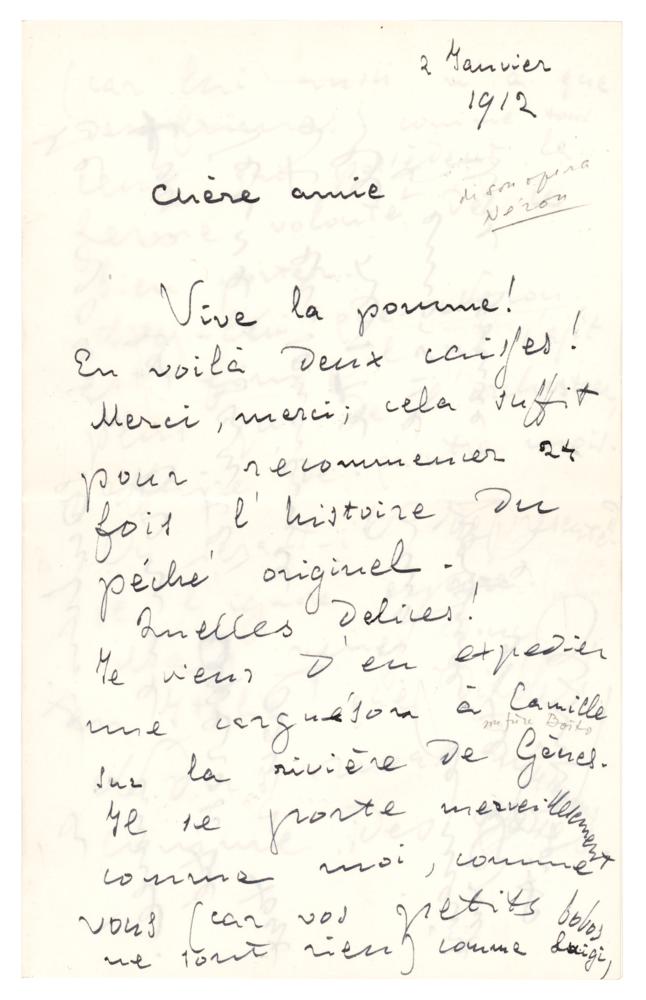 2 Janvier
1912
Chère amie
di son opera
Néron
Vive la pomme!
En voilà deux caisses!
Merci, merci; cela suffit
pour recommencer 24
fois l'histoire du
péché originel.
Quelles delices!
Je viens d'en expedier
une à Camille
frère Boito
sur la rivière de Gênes.
Il se porte merveilleusement
comme moi, comme
vous (car vos petits bobos
ne sont rien) comme Luigi,